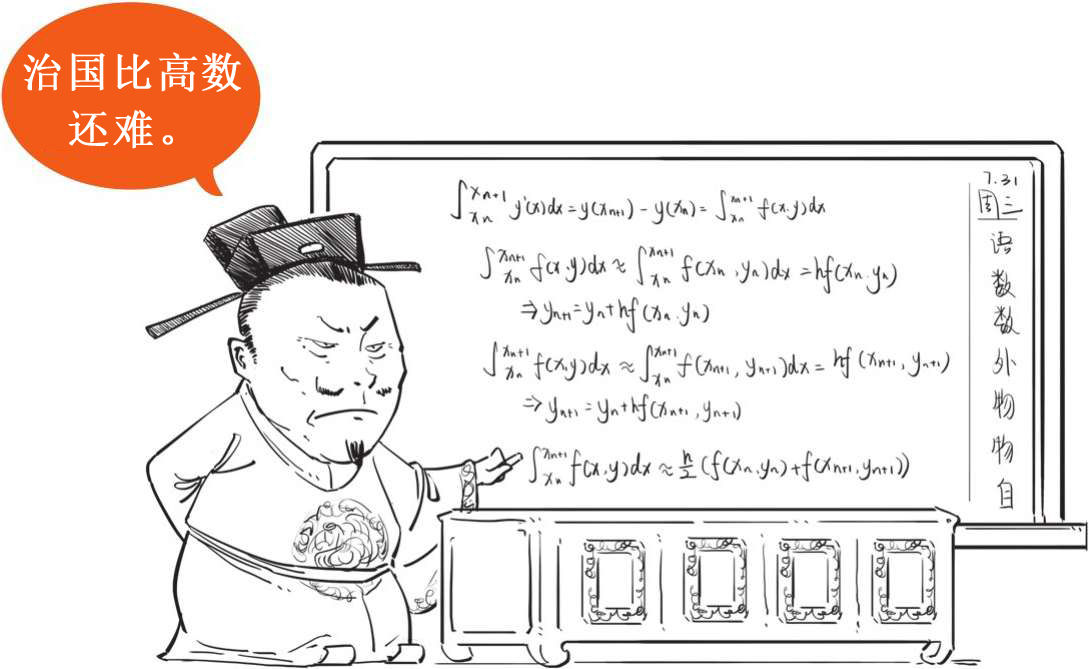 治国比高数
还难。
∫_{xn}^{xn+1} y'(x)dx = y(xn+1) - y(xn) = ∫_{xn}^{xn+1} f(x.y)dx
∫_{xn}^{xn+1} f(x.y)dx ≈ ∫_{xn}^{xn+1} f(xn,yn)dx = hf(xn.yn)
⇒ yn+1 = yn + hf(xn.yn)
∫_{xn}^{xn+1} f(x,y)dx ≈ ∫_{xn}^{xn+1} f(xn+1, yn+1)dx = hf(xn+1, yn+1)
⇒ yn+1 = yn + hf(xn+1, yn+1)
∫_{xn}^{xn+1} f(x,y)dx ≈ h/2 (f(xn,yn) + f(xn+1,yn+1))
7.31
周三
语
数
数
外
物
物
自